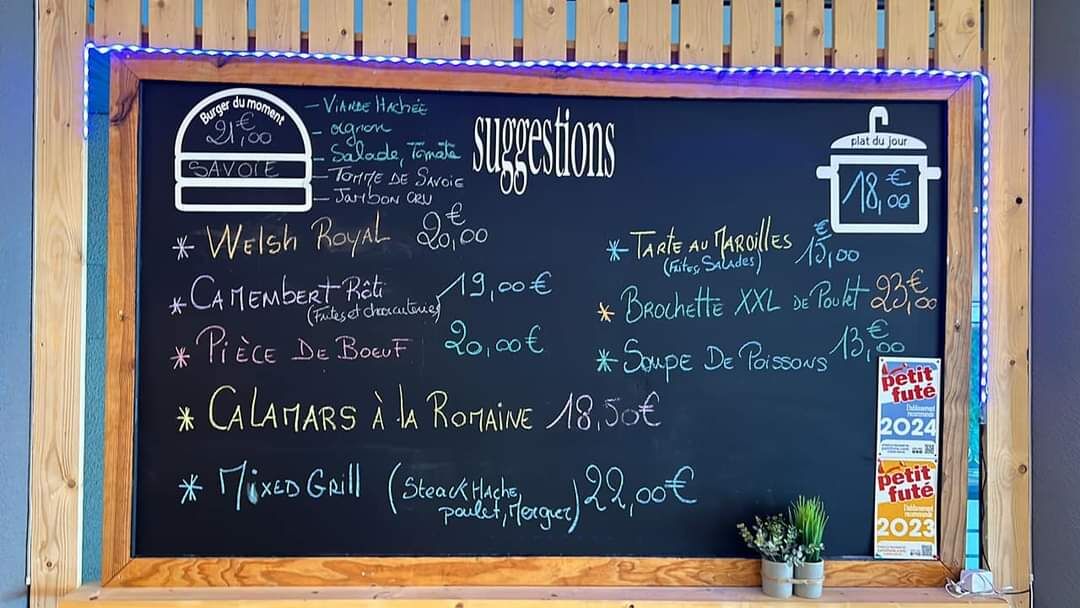 Burger du moment
21,00 €
SAVOIE
- VIANDE HACHÉE
- oignon
- Salade, Tomate
- TOMME DE SAVOIE
- JAMBON CRU
suggestions
plat du jour
18,00 €
* WELSH ROYAL 20,00 €
* CAMEMBERT Rôti 19,00 €
(Frites et charcuteries)
* PIÈCE DE BOEUF 20,00 €
* CALAMARS À la ROMAINE 18,50 €
* MIXED GRILL (STEACK HACHE, poulet, Merguez) 22,00 €
* TARTE AU MAROILLES 15,00 €
(Frites, SALADES)
* BROCHETTE XXL DE POULET 23,00 €
* SOUPE DE POISSONS 13,00 €
petit futé
Établissement recommandé
2024
petit futé
Établissement recommandé
2023